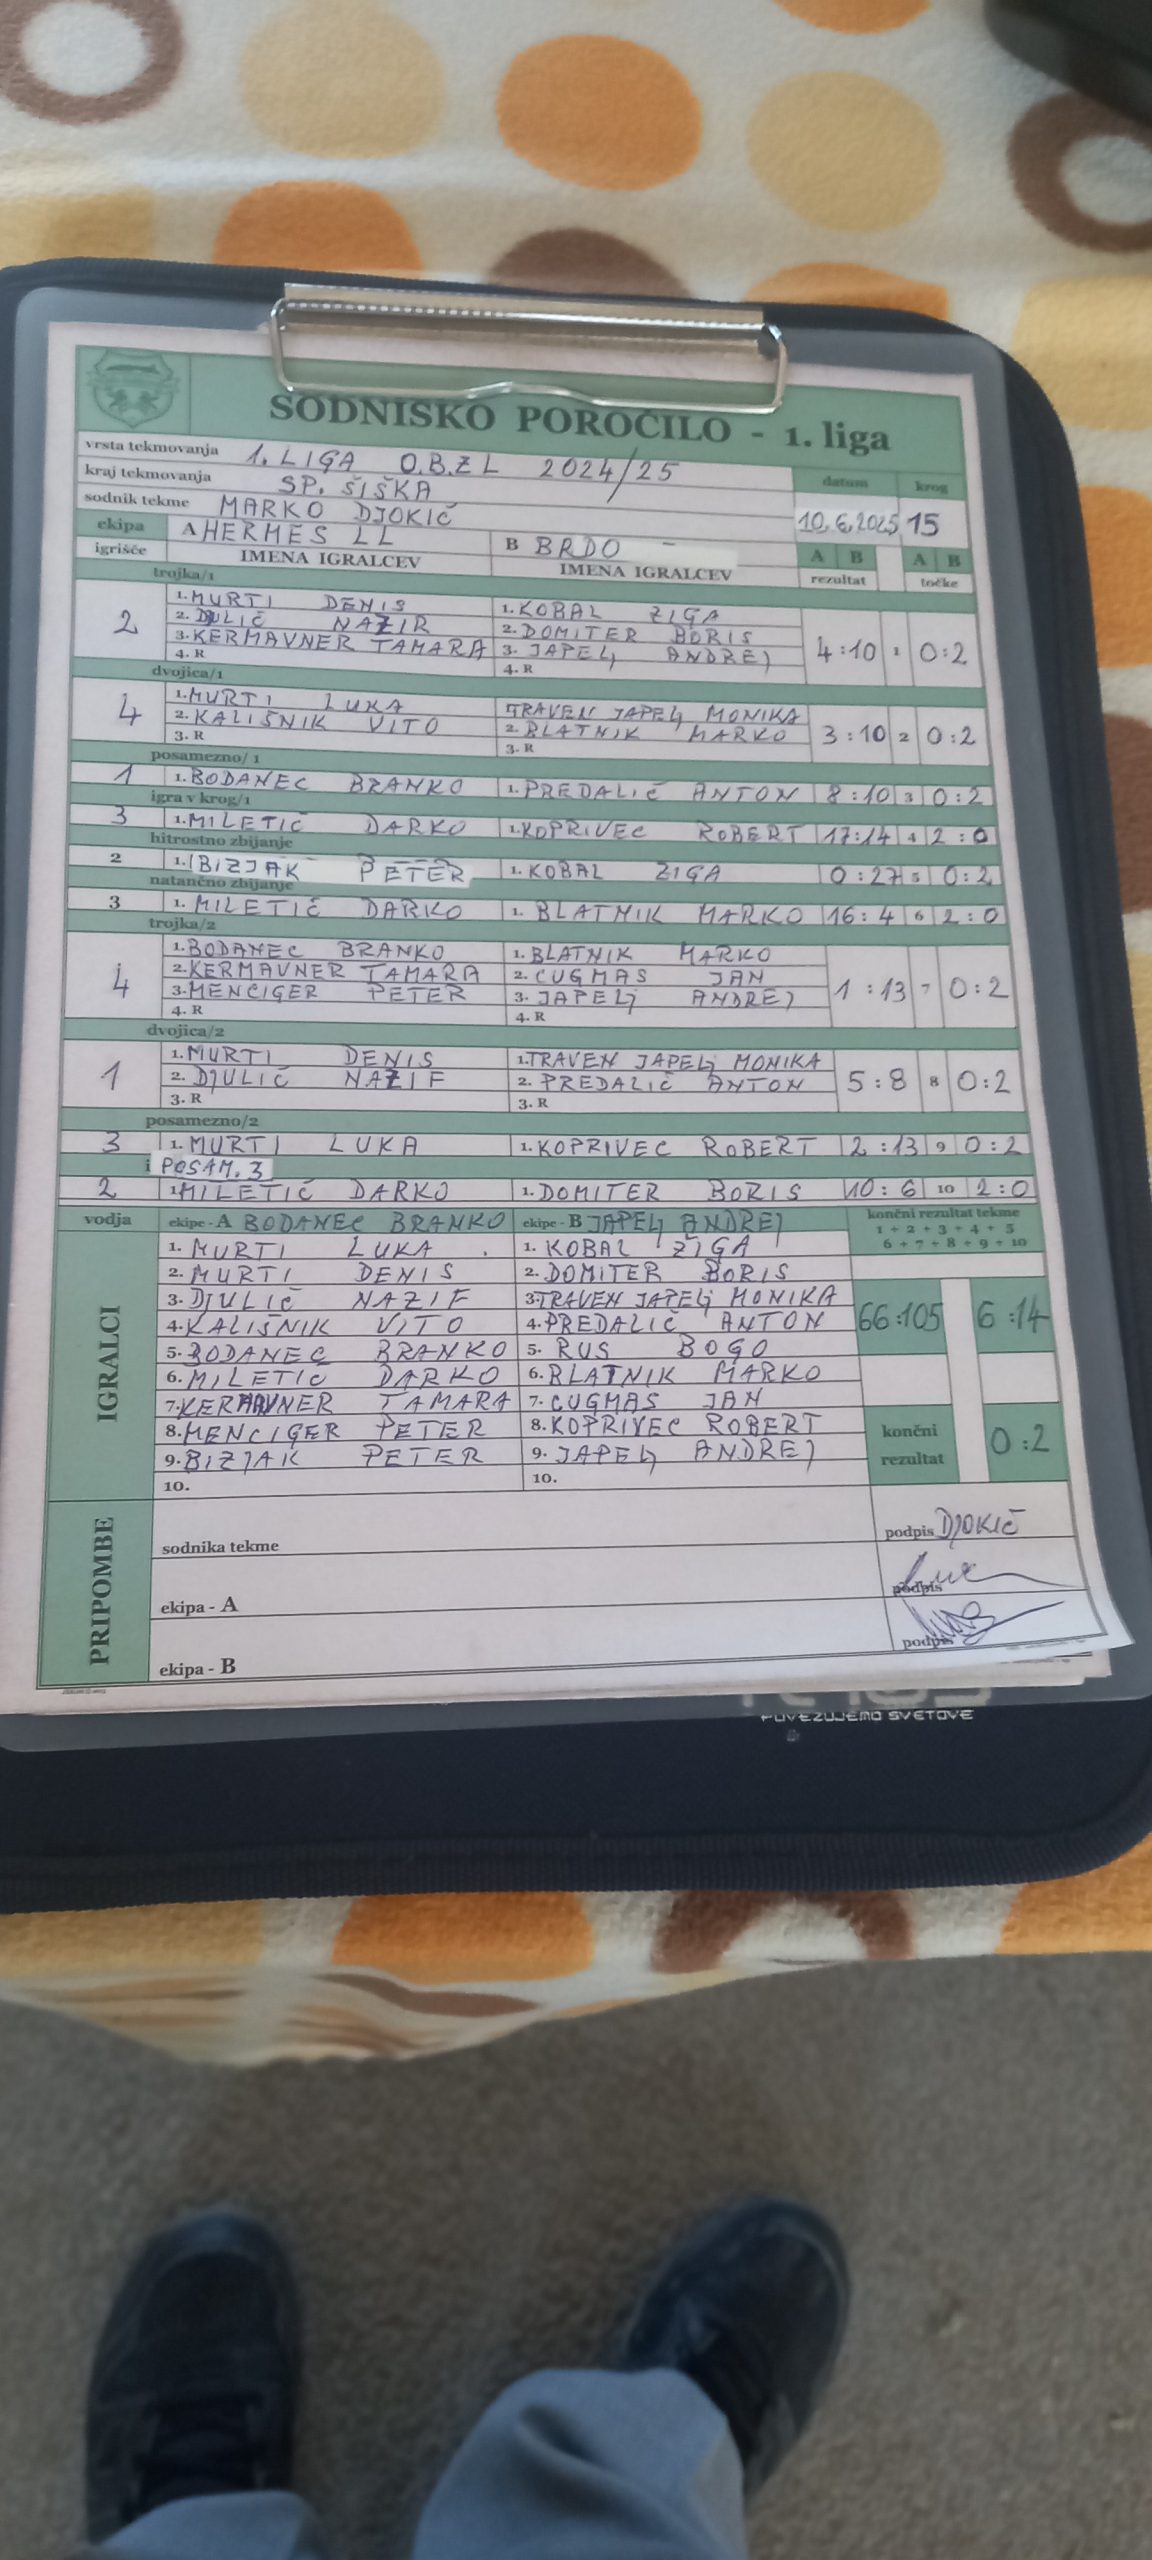 SODNISKO POROČILO - 1. liga
vrsta tekmovanja 1. LIGA O.B.Z L 2024/25
kraj tekmovanja SP. ŠIŠKA datum krog
sodnik tekme MARKO DJOKIČ 10.6.2025 15
ekipa A HERMES LL B BRDO - A B A B
igrišče IMENA IGRALCEV IMENA IGRALCEV rezultat točke
trojka/1
1. MURTI DENIS 1. KOBAL ŽIGA
2 2. DJULIČ NAZIR 2. DOMITER BORIS 4:10 1 0:2
3. KERMAVNER TAMARA 3. JAPELJ ANDREJ
4. R 4. R
dvojica/1
1. MURTI LUKA TRAVEN JAPELJ MONIKA
4 2. KALIŠNIK VITO 2. BLATNIK MARKO 3:10 2 0:2
3. R 3. R
posamezno/1
1 1. BODANEC BRANKO 1. PREDALIČ ANTON 8:10 3 0:2
igra v krog/1
3 1. MILETIČ DARKO 1. KOPRIVEC ROBERT 17:14 4 2:0
hitrostno zbijanje
2 1. BIZJAK PETER 1. KOBAL ŽIGA 0:27 5 0:2
natančno zbijanje
3 1. MILETIČ DARKO 1. BLATNIK MARKO 16:4 6 2:0
trojka/2
1. BODANEC BRANKO 1. BLATNIK MARKO
4 2. KERMAVNER TAMARA 2. CUGMAS JAN 1:13 7 0:2
3. MENCIGER PETER 3. JAPELJ ANDREJ
4. R 4. R
dvojica/2
1. MURTI DENIS 1. TRAVEN JAPELJ MONIKA
1 2. DJULIČ NAZIF 2. PREDALIČ ANTON 5:8 8 0:2
3. R 3. R
posamezno/2
3 1. MURTI LUKA 1. KOPRIVEC ROBERT 2:13 9 0:2
i POSAM. 3
2 1. MILETIČ DARKO 1. DOMITER BORIS 10:6 10 2:0
vodja ekipe - A BODANEC BRANKO ekipe - B JAPELJ ANDREJ končni rezultat tekme
1 + 2 + 3 + 4 + 5
6 + 7 + 8 + 9 + 10
IGRALCI
1. MURTI LUKA 1. KOBAL ŽIGA
2. MURTI DENIS 2. DOMITER BORIS
3. DJULIČ NAZIF 3. TRAVEN JAPELJ MONIKA
4. KALIŠNIK VITO 4. PREDALIČ ANTON 66:105 6:14
5. BODANEC BRANKO 5. RUS BOGO
6. MILETIČ DARKO 6. BLATNIK MARKO
7. KERMAVNER TAMARA 7. CUGMAS JAN
8. MENCIGER PETER 8. KOPRIVEC ROBERT končni
9. BIZJAK PETER 9. JAPELJ ANDREJ rezultat 0:2
10. 10.
PRIPOMBE
sodnika tekme podpis DJOKIČ
ekipa - A podpis
ekipa - B podpis
POVEZUJEMO SVETOVE